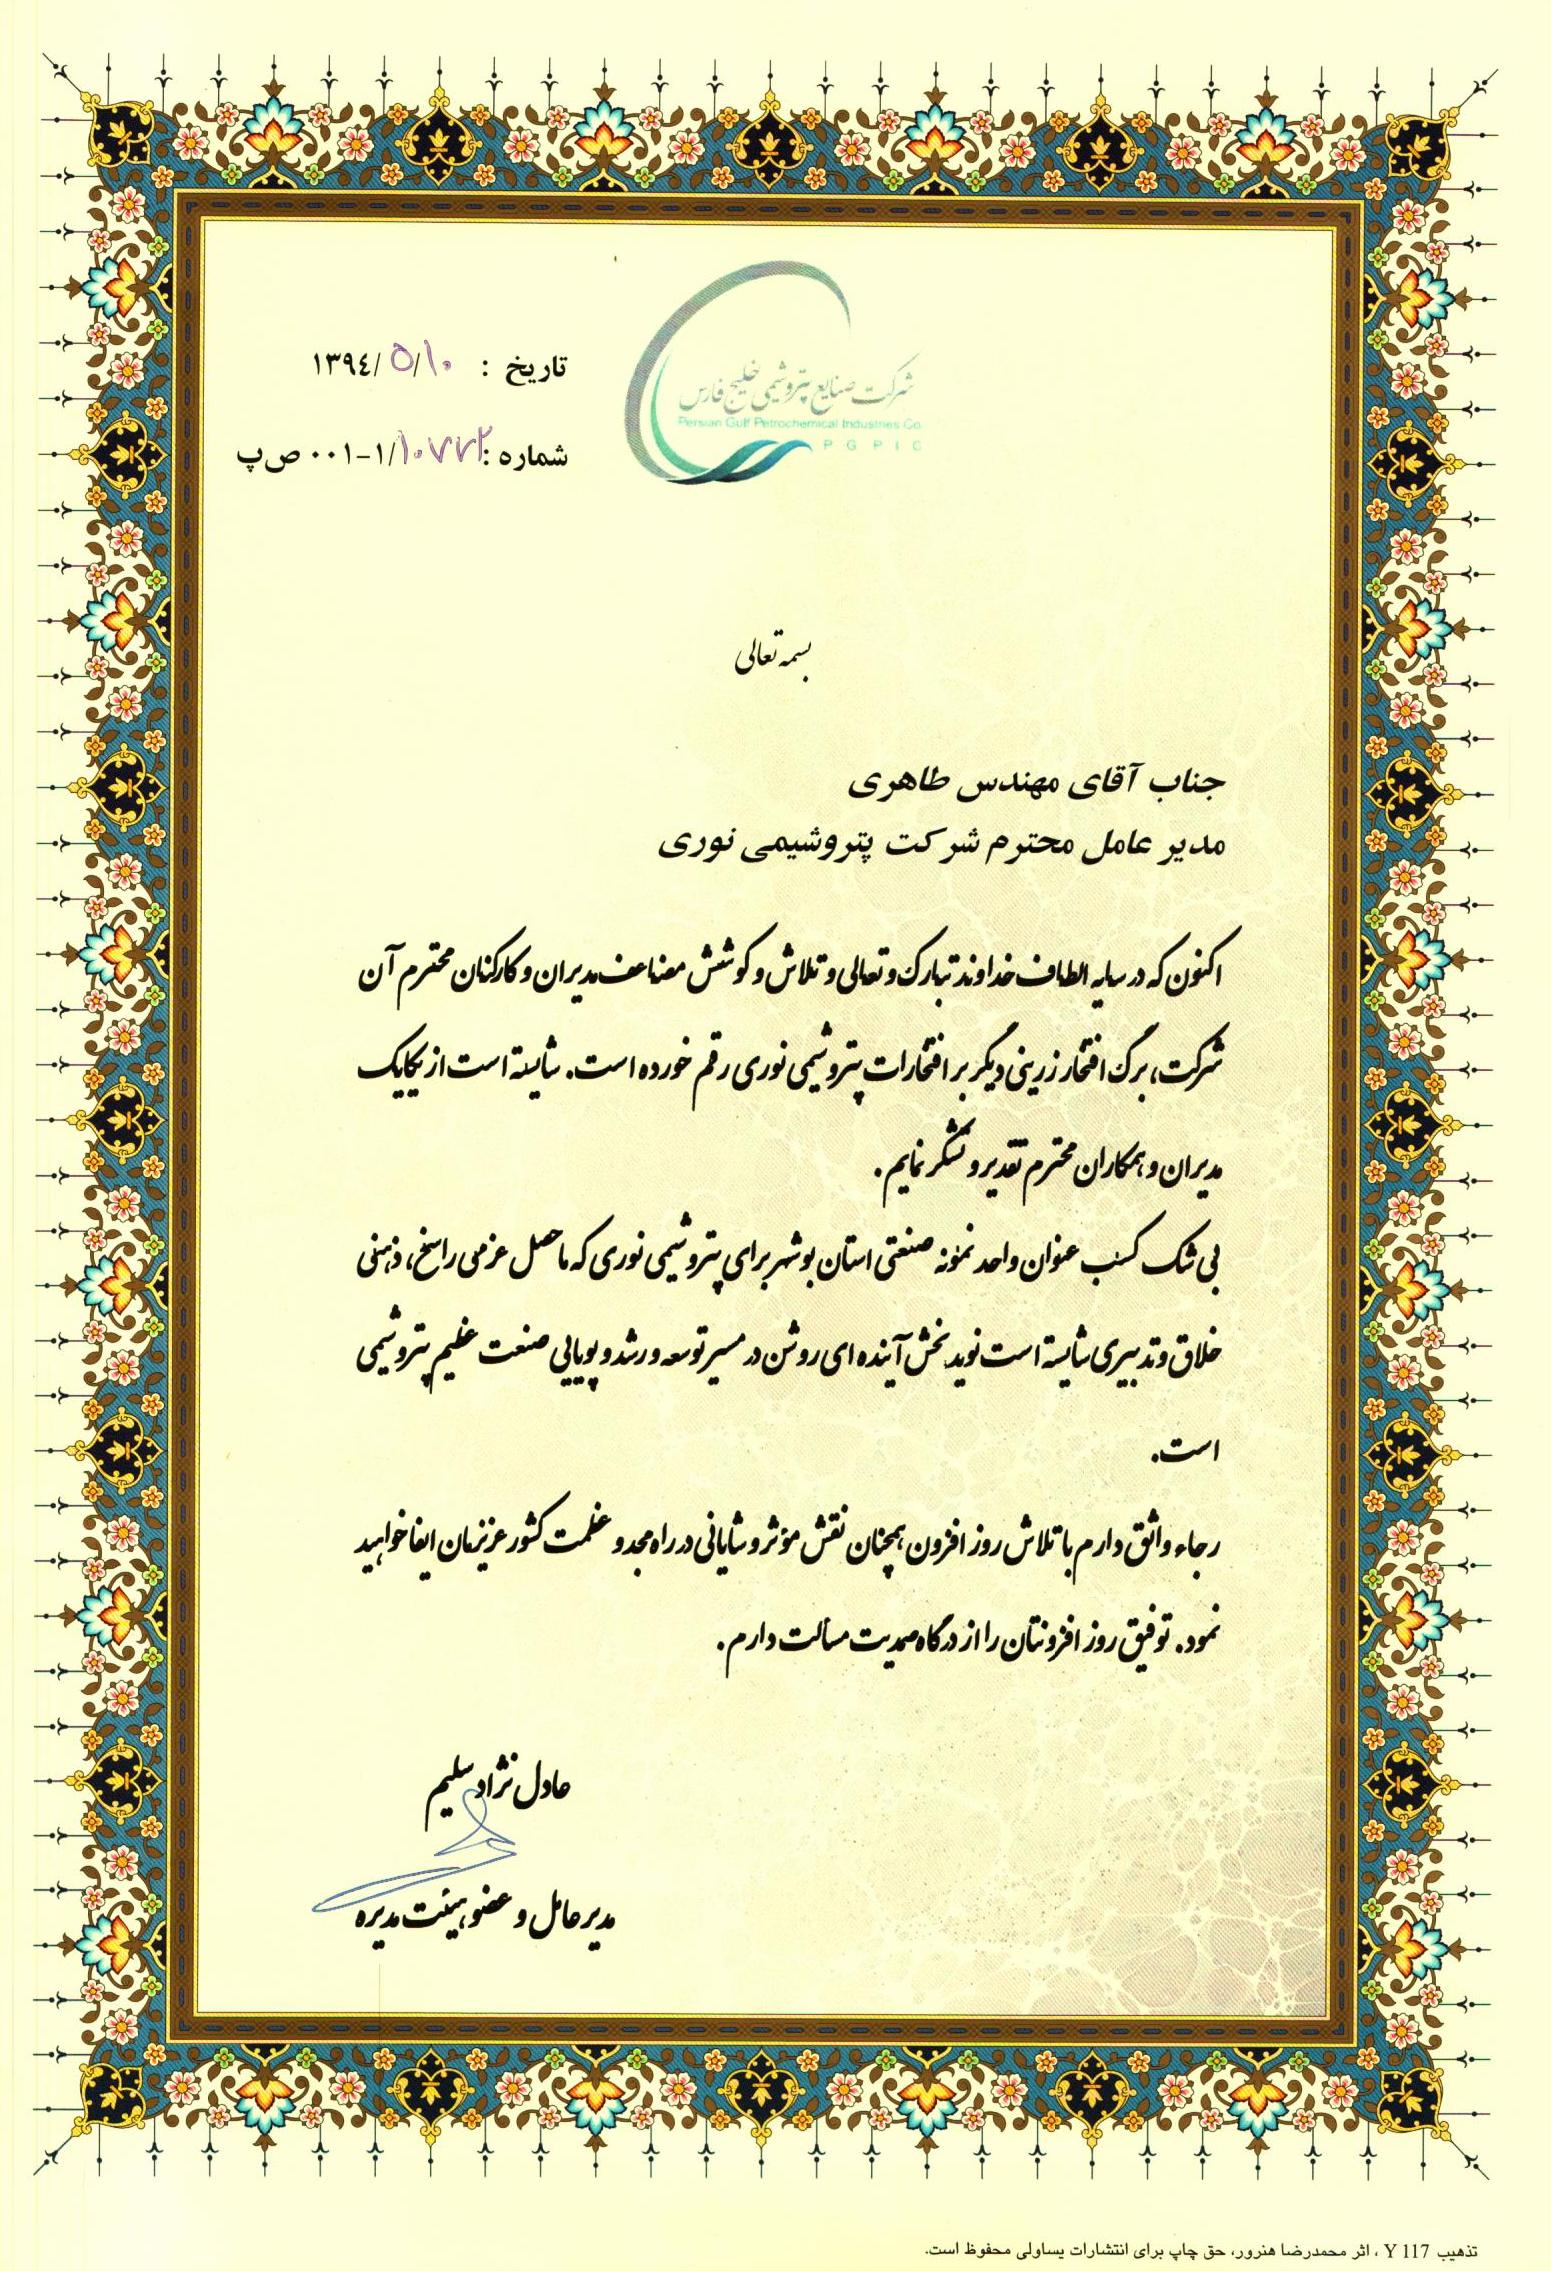 شرکت صنایع پتروشیمی خلیج فارس
Persian Gulf Petrochemical Industries Co.
P G P I C
تاریخ : ۱۳۹٤/۵/۱۰
شماره :۱۰۷۷۲/۱-۰۰۱ ص پ
بسمه تعالی
جناب آقای مهندس طاهری
مدیر عامل محترم شرکت پتروشیمی نوری
اکنون که در سایه الطاف خداوند تبارک و تعالی و تلاش و کوشش مضاعف مدیران و کارکنان محترم آن
شرکت، برگ افتخار زرینی دیگر بر افتخارات پتروشیمی نوری رقم خورده است. شایسته است از یکایک
مدیران و همکاران محترم تقدیر و تشکر نمایم.
بی شک کسب عنوان واحد نمونه صنعتی استان بوشهر برای پتروشیمی نوری که ماحصل عزمی راسخ، ذهنی
خلاق و تدبیری شایسته است نوید بخش آینده ای روشن در مسیر توسعه و رشد و پویایی صنعت عظیم پتروشیمی
است.
رجاء واثق دارم با تلاش روز افزون همچنان نقش مؤثر و شایانی در راه مجد و عظمت کشور عزیزمان ایفا خواهید
نمود. توفیق روز افزونتان را از درگاه صمدیت مسألت دارم.
عادل نژاد سلیم
مدیرعامل و عضو هیئت مدیره
تذهیب Y 117 ، اثر محمدرضا هنرور، حق چاپ برای انتشارات یساولی محفوظ است.